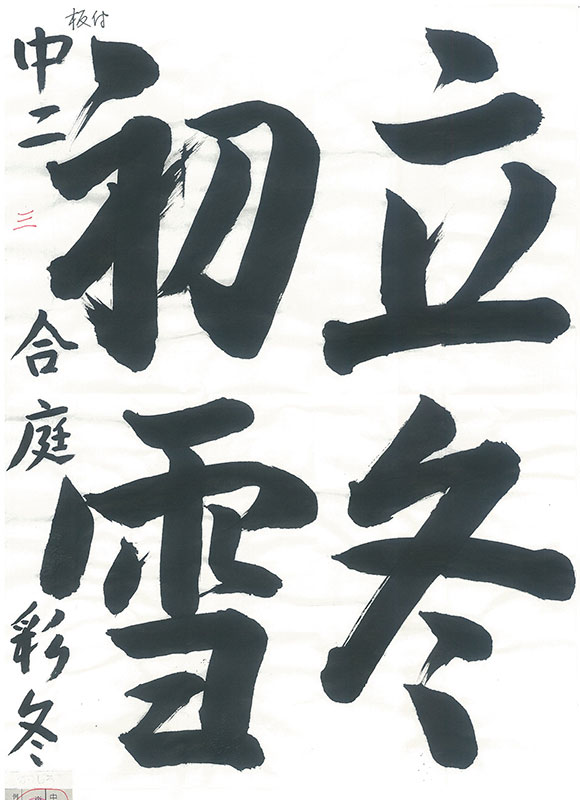 立冬
初雪
板付
中二 合庭彩冬
三